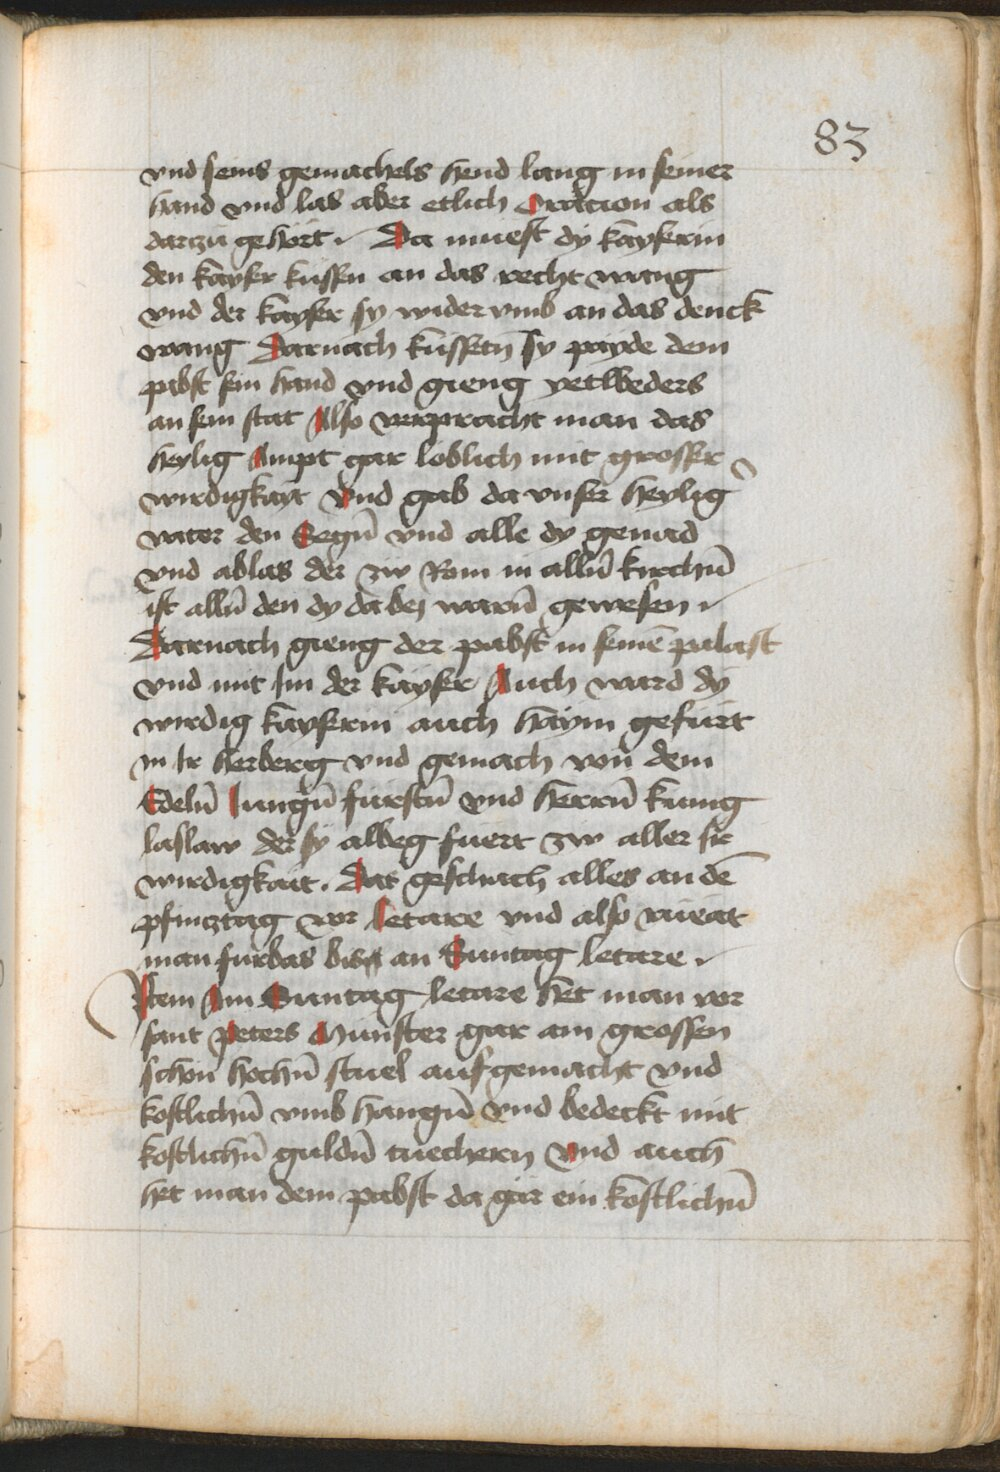 83
vnd seins gemachels hend lang in seiner
hand vnd las aber etlich Oracion als
darczu gehort. Da muest dy kayserin
den kayser kussen an das recht wang
vnd der kayser sy wider vmb an das denck
wang Darnach kussetn Sy payde dem
pabst sein hand vnd gieng yetlbeders
an sein stat Also verpracht man das
heylig Ampt gar loblich mit grosser
wirdigkayt Vnd gab da vnser heylig
vater den Segn̄ vnd alle dy genad
vnd ablas der zw Rom in alln̄ kirchn̄
ist alln̄ den dy da bej warn̄ gewesen.
Darnach gieng der pabst in seinē palast
vnd mit Im der kayser Auch ward dy
wirdig kayserin auch haym gefürt
in Ir herberg vnd gemach von dem
Edeln̄ Jungn̄ fürstn̄ vnd herrn̄ kunig
laslaw der sy albeg fuert zw aller Ir
wirdigkait. Das geschach alles an dē
pfincztag vor Letare vnd also rueat
man furbas bis an Suntag letare.
Item Am Suntag letare het man vor
sant Peters Münster gar ain grossen
schön hochn̄ stuel aufgemacht vnd
kostlichn̄ vmb hangn̄ vnd bedeckt mit
kostlichn̄ guldn̄ tuechern Vnd auch
het man dem pabst da gar ein kostlichn̄